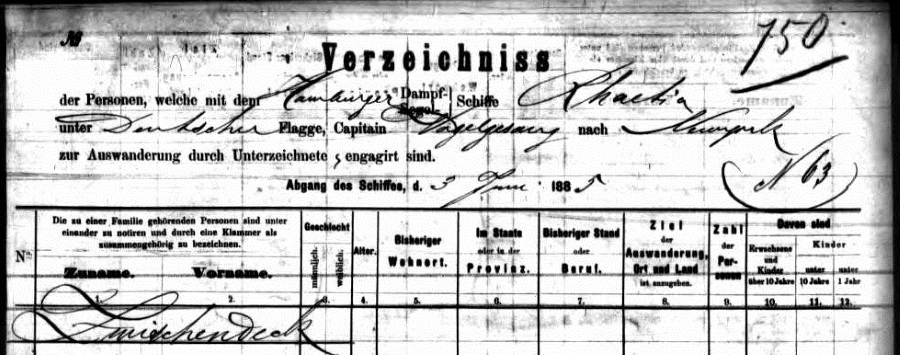 №
750
Verzeichniss
der Personen, welche mit dem Hamburger Dampf- Segel- Schiffe Rhaetia
unter Deutscher Flagge, Capitain Vogelgesang nach Newyork
zur Auswanderung durch Unterzeichnete, engagirt sind.
(N 63)
Abgang des Schiffes, d. 3 Juni 1885
Die zu einer Familie gehörenden Personen sind unter
einander zu notiren und durch eine Klammer als
zusammengehörig zu bezeichnen.
Zuname. Vorname.
Geschlecht
männlich. weiblich.
Alter.
Bisheriger
Wohnort.
Im Staate
oder in der
Provinz.
Bisheriger Stand
oder
Beruf.
Ziel
der
Auswanderung,
Ort und Land
ist anzugeben.
Zahl
der
Per-
sonen
Davon sind
Erwachsene
und
Kinder
über 10 Jahre
Kinder
unter
10 Jahre
unter
1 Jahr
1. 2. 3. 4. 5. 6. 7. 8. 9. 10. 11. 12.
Zwischendeck